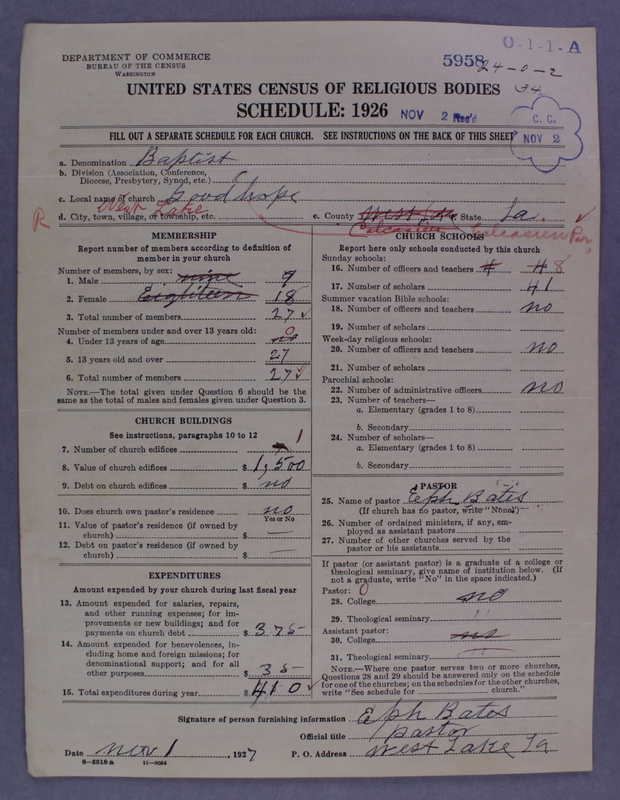 O-1-1-A
DEPARTMENT OF COMMERCE
BUREAU OF THE CENSUS
WASHINGTON
5958
24-0-2
34
UNITED STATES CENSUS OF RELIGIOUS BODIES
SCHEDULE: 1926
NOV 2 Rec'd
C. C.
NOV 2
FILL OUT A SEPARATE SCHEDULE FOR EACH CHURCH. SEE INSTRUCTIONS ON THE BACK OF THIS SHEET
a. Denomination Baptist
b. Division (Association, Conference,
Diocese, Presbytery, Synod, etc.)
c. Local name of church Good hope
R West Lake
d. City, town, village, or township, etc. e. County West Lake State La.
Calcasieu Calcasieu Par
MEMBERSHIP
Report number of members according to definition of
member in your church
Number of members, by sex:
1. Male nine 9
2. Female Eighteen 18
3. Total number of members 27
Number of members under and over 13 years old:
4. Under 13 years of age no 0
5. 13 years old and over 27
6. Total number of members 27
NOTE.—The total given under Question 6 should be the
same as the total of males and females given under Question 3.
CHURCH BUILDINGS
See instructions, paragraphs 10 to 12
7. Number of church edifices 1
8. Value of church edifices $ 1,500
9. Debt on church edifices $ no
10. Does church own pastor's residence no
Yes or No
11. Value of pastor's residence (if owned by
church) $ —
12. Debt on pastor's residence (if owned by
church) $ —
EXPENDITURES
Amount expended by your church during last fiscal year
13. Amount expended for salaries, repairs,
and other running expenses; for im-
provements or new buildings; and for
payments on church debt $ 375
14. Amount expended for benevolences, in-
cluding home and foreign missions; for
denominational support; and for all
other purposes $ 35
15. Total expenditures during year $ 410
CHURCH SCHOOLS
Report here only schools conducted by this church
Sunday schools:
16. Number of officers and teachers 8
17. Number of scholars 41
Summer vacation Bible schools:
18. Number of officers and teachers no
19. Number of scholars
Week-day religious schools:
20. Number of officers and teachers no
21. Number of scholars
Parochial schools:
22. Number of administrative officers no
23. Number of teachers—
a. Elementary (grades 1 to 8)
b. Secondary
24. Number of scholars—
a. Elementary (grades 1 to 8)
b. Secondary
PASTOR
25. Name of pastor Eph Bates
(If church has no pastor, write "None")
26. Number of ordained ministers, if any, em-
ployed as assistant pastors
27. Number of other churches served by the
pastor or his assistants
If pastor (or assistant pastor) is graduate of a college or
theological seminary, give name of institution below. (If
not a graduate, write "No" in the space indicated.)
Pastor: 0
28. College no
29. Theological seminary "
Assistant pastor:
30. College no
31. Theological seminary "
NOTE.—Where one pastor serves two or more churches,
Questions 28 and 29 should be answered only on the schedule
for one of the churches; on the schedules for the other churches,
write "See schedule for church."
Signature of person furnishing information Eph Bates
Official title pastor
Date nov 1, 1927 P. O. Address West Lake La
8—5518 a 11—9564